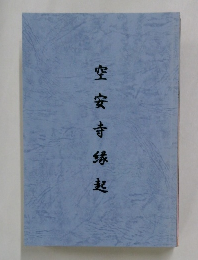 空安寺縁起